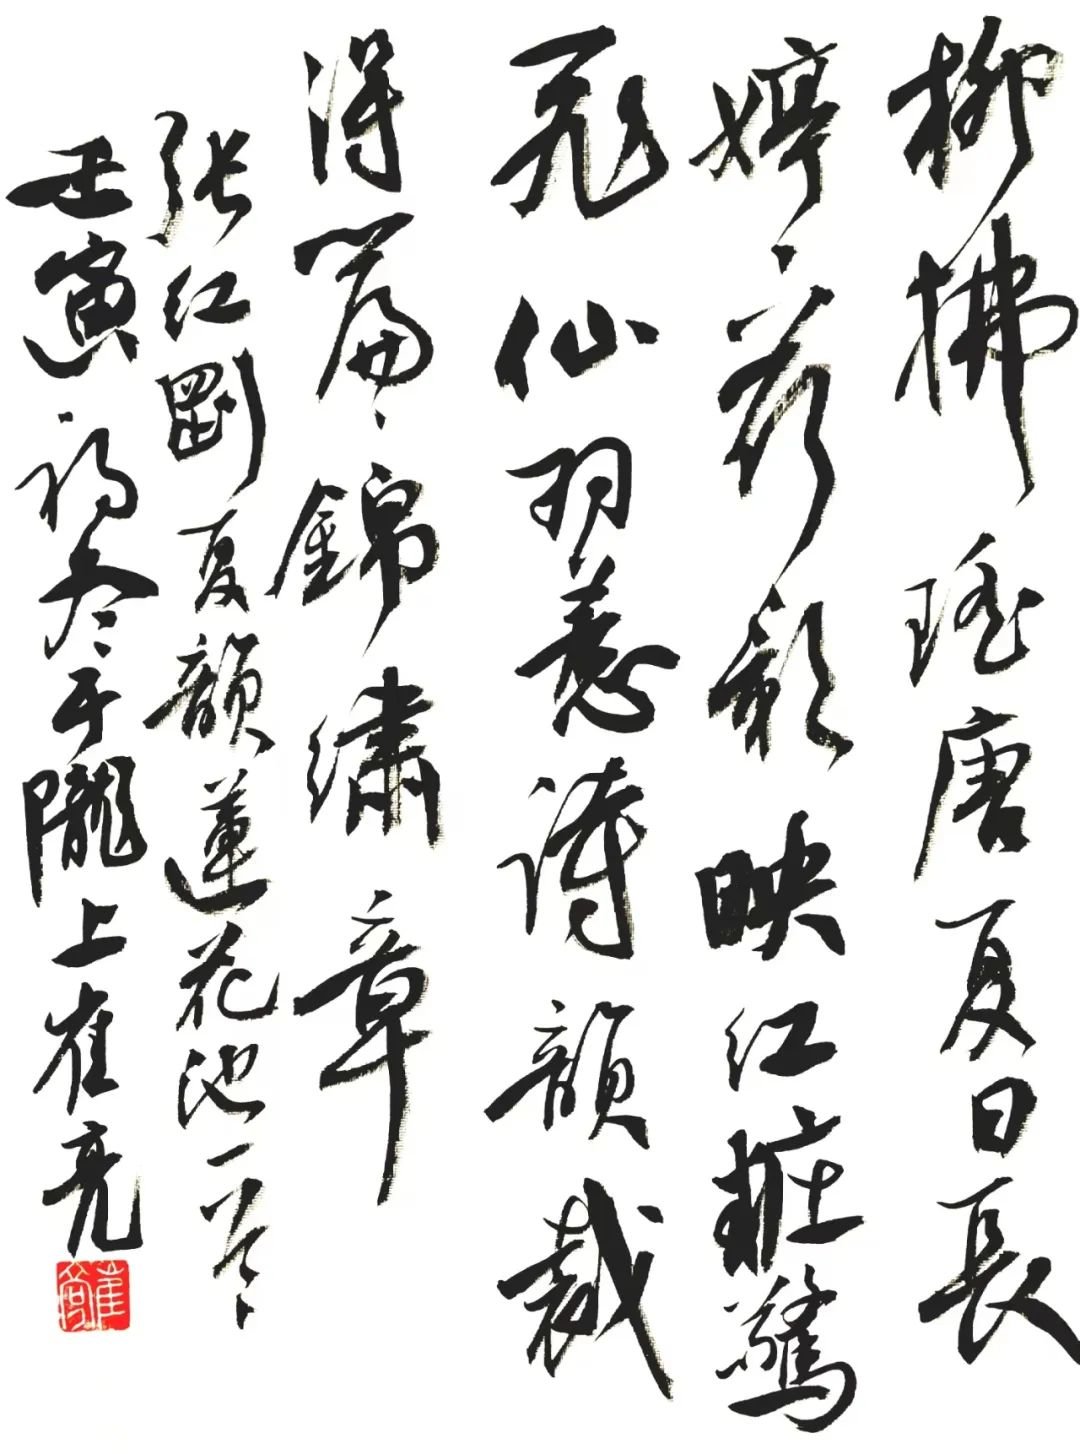 柳拂瑶唐夏日長
婷婷芳影映红粧驚
飛仙羽惹詩韻裁
得篇篇錦繡章
张红剛夏韻蓮花池一首
壬寅初冬于隴上崔亮